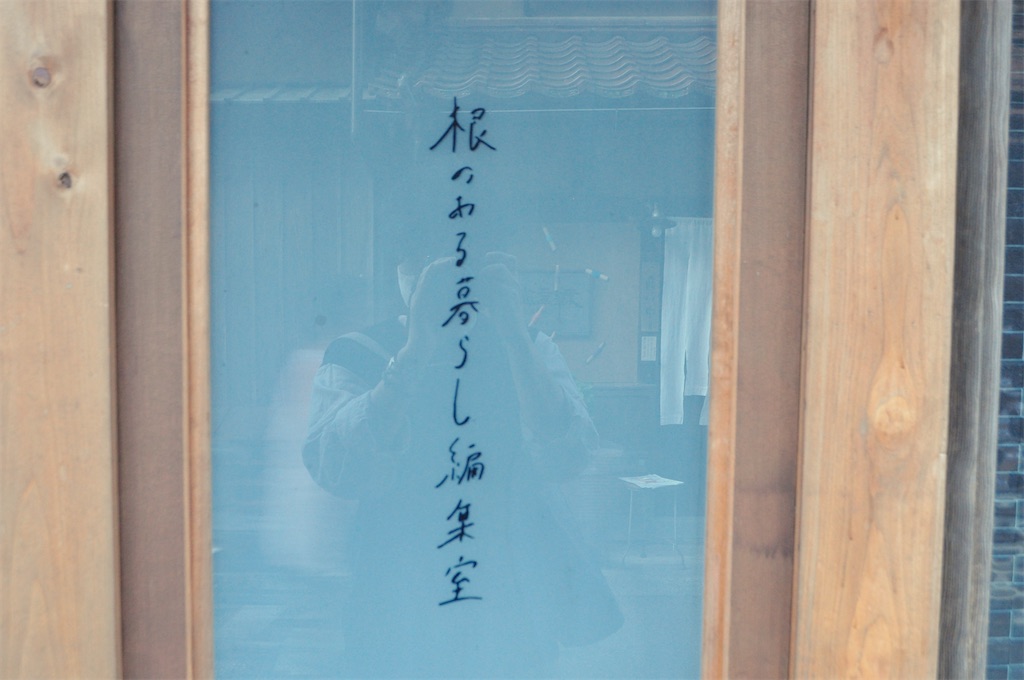 根のある暮らし編集室